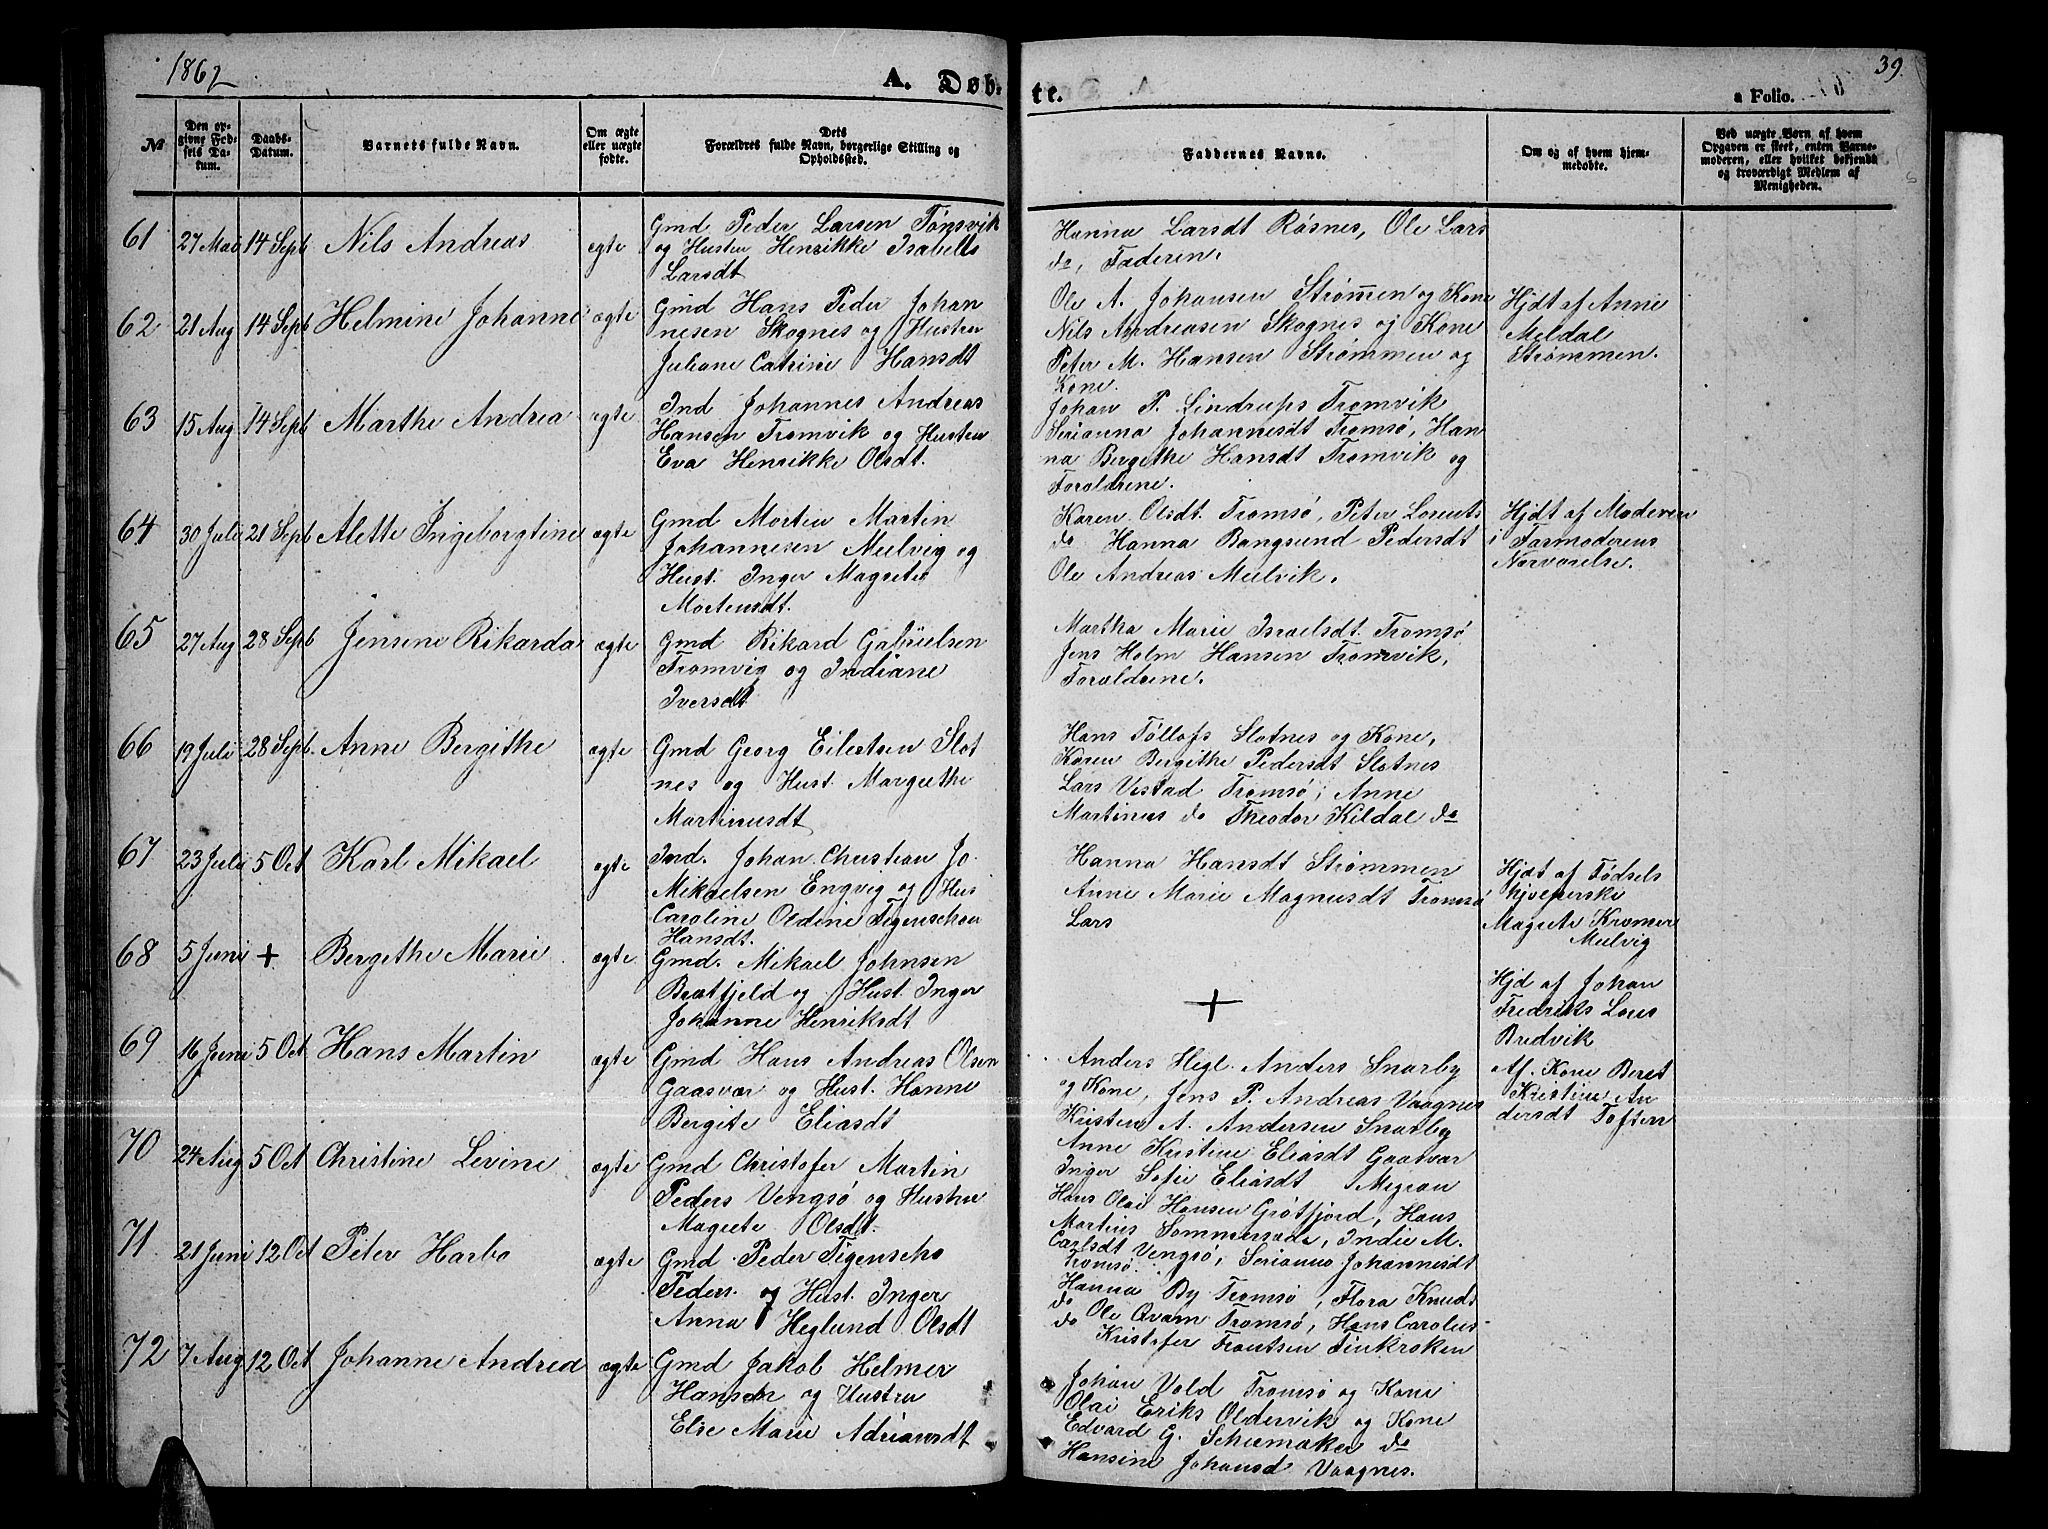 1862
A. Døb-
te.
39.
a Folio.
№
Den opgivne Fødsels Datum.
Daabs-Datum.
Barnets fulde Navn.
Om ægte eller uægte fødte.
Dets Forældres fulde Navn, borgerlige Stilling og Opholdssted.
Faddernes Navne.
Om og af hvem hjemmedøbte.
Ved uægte Børn af hvem Opgaven er skeet, enten Barnemoderen, eller hvilket bekjendt og troværdigt Medlem af Menigheden.
61 27 Mai 14 Sept Nils Andreas ægte
Gmd Peder Larsen Tønsvik
og Hustru Henrikke Isabella
Larsdt
Hanna Larsdt Røsnes, Ole Lars
do, Faderen.
62 21 Aug 14 Sept Helmine Johanne ægte
Gmd Hans Peder Johan
nesen Skognes og Hustru
Juliane Catrine Hansdt
Ole A. Johansen Strømmen og Kone
Nils Andreasen Skognes og Kone
Peter M. Hansen Strømmen og
Kone.
Hjdt af Anne
Meldal
Strømmen.
63 15 Aug 14 Sept Marthe Andrea ægte
Ind Johannes Andreas
Hansen Tromvik og Hustru
Eva Henrikke Olsdt.
Johan P. Lindrups Tromvik
Serianna Johannesdt Tromsø, Han
na Bergithe Hansdt Tromvik og
Forældrene.
64 30 Juli 21 Sept Alette Ingeborgtine ægte
Gmd Mortin Martin
Johannesen Mulvig og
Hust. Inger Magrete
Mortensdt.
Karen Olsdt. Tromsø, Peter Lorents
do Hanna Bangsund Pedersdt
Ole Andreas Mulvik.
Hjdt af Moderen
i Farmoderens
Nærværelse.
65 27 Aug 28 Sept Jensine Rikarda ægte
Gmd Rikard Gabrielsen
Tromvig og Indiane
Iversdt
Martha Marie Israelsdt. Tromsø
Jens Holm Hansen Tromvik,
Forældrene.
66 19 Juli 28 Sept. Anne Bergithe ægte
Gmd Georg Eilertsen Slot
nes og Hust. Margrethe
Martinusdt
Hans Tøllefs Slotnes og Kone,
Karen Bergithe Pedersdt Slotnes
Lars Vestad Tromsø, Anne
Martinus do Theodor Kildal do
67 23 Juli 5 Oct Karl Mikael ægte
Ind. Johan Christian Jo.
Mikaelsen Engvig og Hus
Caroline Oldine Figenschou
Hansdt.
Hanna Hansdt Strømmen
Anne Marie Magnusdt Tromsø
Lars
Hjdt af Fødsels
hjelperske
Magrete Kræmer
Mulvig
68 5 Juni + Bergethe Marie ægte
Gmd. Mikael Johnsen
Brætfjeld og Hust. Inger
Johanne Henriksdt
+
Hjd af Johan
Fredriks Lous
Bredvik
69 16 Juni 5 Oct Hans Martin ægte
Gmd Hans Andreas Olsen
Gaasvær og Hust. Hanne
Bergite Eliasdt
Anders Hegl. Anders Snarby
og Kone, Jens P. Andreas Vaagnes
Kristen A. Andersen Snarby
Anne Kristine Eliasdt Gaasvær
Inger Sofie Eliasdt
Af. Kone Beret
Kristine An
dersdt Toften
70 24 Aug 5 Oct Christine Levine ægte
Gmd Christofer Martin
Peders Vengsø og Hustru
Magrete Olsdt.
Hans Olai Hansen Grøtfjord, Hans
Martins Sommerset, Indie M.
Carlsdt Vengsø, Serianna Johannesdt
Tromsø.
71 21 Juni 12 Oct Peter Harbo ægte
Gmd. Peder Figenscho
Peders. og Hust. Inger
Anna Heglund Olsdt
Hanna By Tromsø, Flora Knuds
do Ole Qvam Tromsø, Hans Carolus
do Kristofer Frantsen Finkroken
72 7 Aug 12 Oct Johanne Andrea ægte
Gmd Jakob Helmer
Hansen og Hustru
Else Marie Adriansdt
Johan Vold Tromsø og Kone
Olai Eriks Oldervik og Kone
Edvard G. Schumaker do
Hansine Johansd Vaagnes.